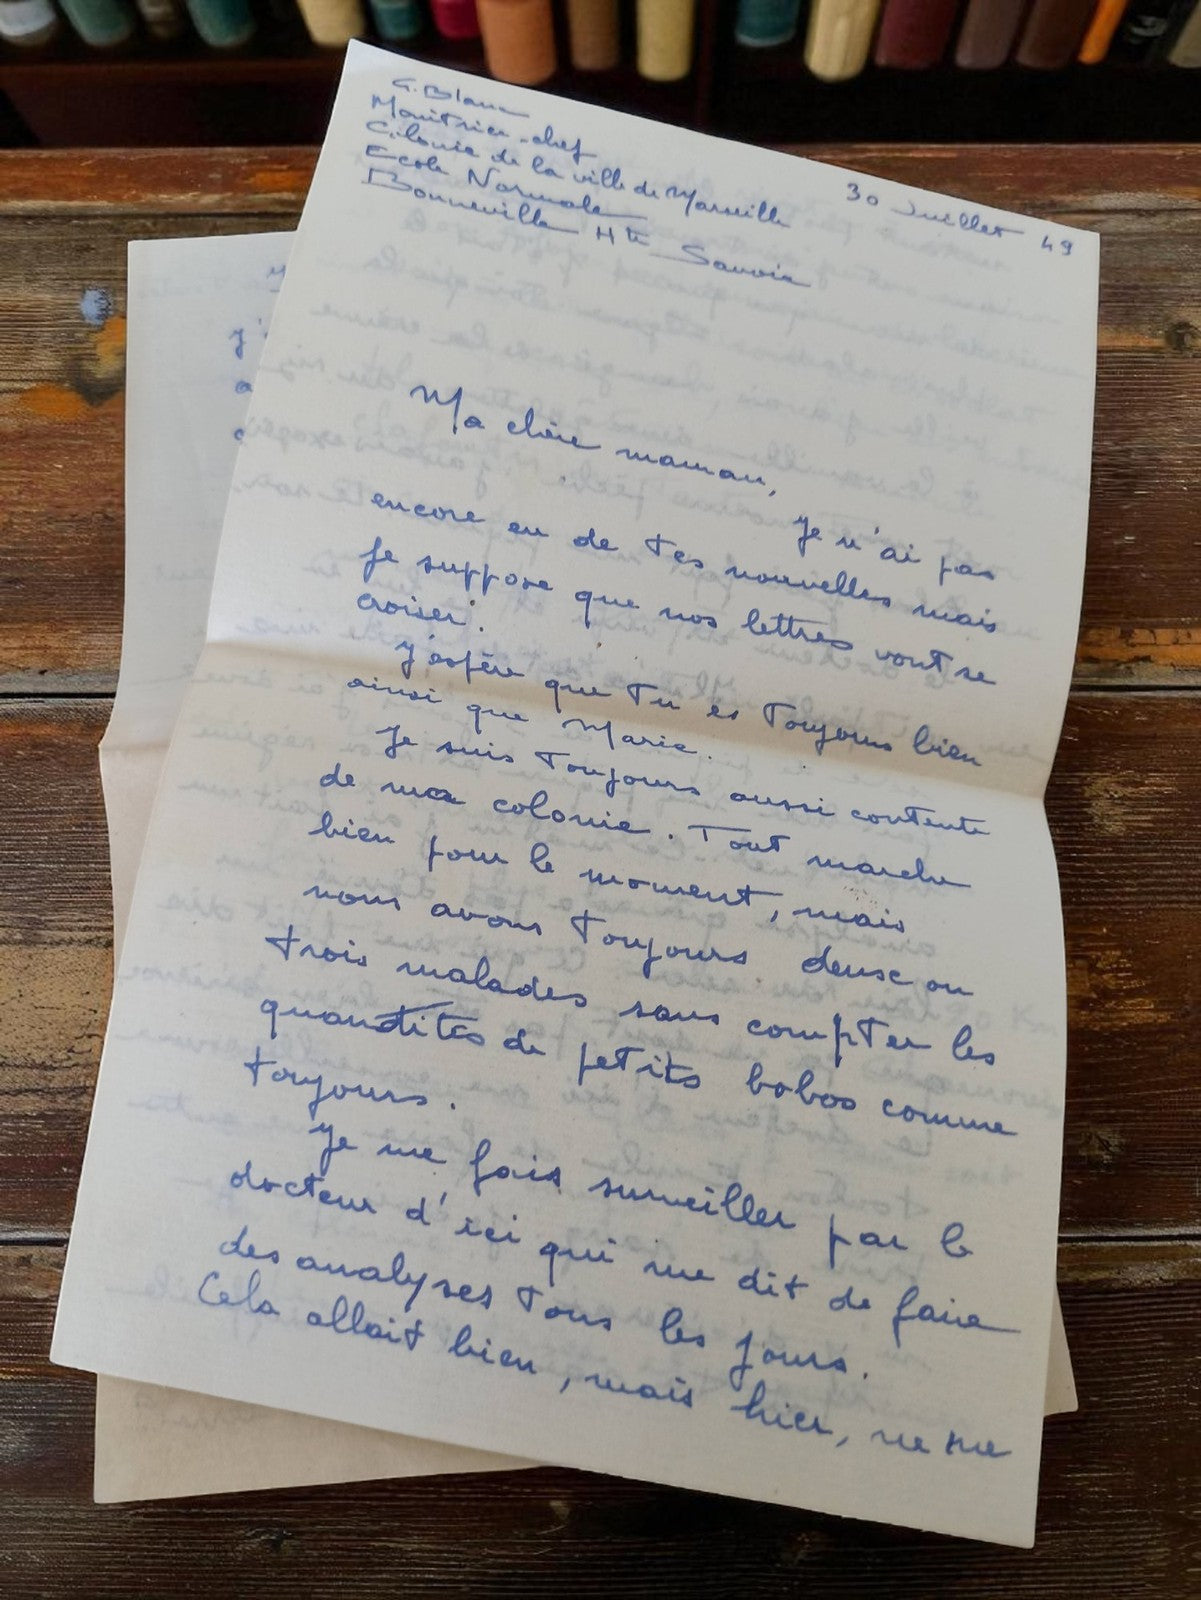 G. Blanc
Monitrice-chef
Colonie de la ville de Marseille
Ecole Normale
Bonneville Hte Savoie
30 Juillet 49
Ma chère maman,
Je n'ai pas
encore eu de tes nouvelles mais
je suppose que nos lettres vont se
croiser.
J'espère que tu es toujours bien
ainsi que Marie.
Je suis toujours aussi contente
de ma colonie. Tout marche
bien pour le moment, mais
nous avons toujours deux ou
trois malades sans compter les
quantités de petits bobos comme
toujours.
Je me fais surveiller par le
docteur d'ici qui me dit de faire
des analyses tous les jours.
Cela allait bien, mais hier, ne me